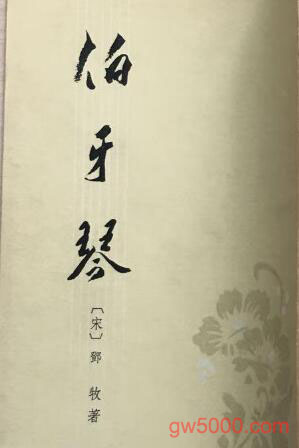 伯牙琴
〔宋〕鄧牧著
gw5000.com